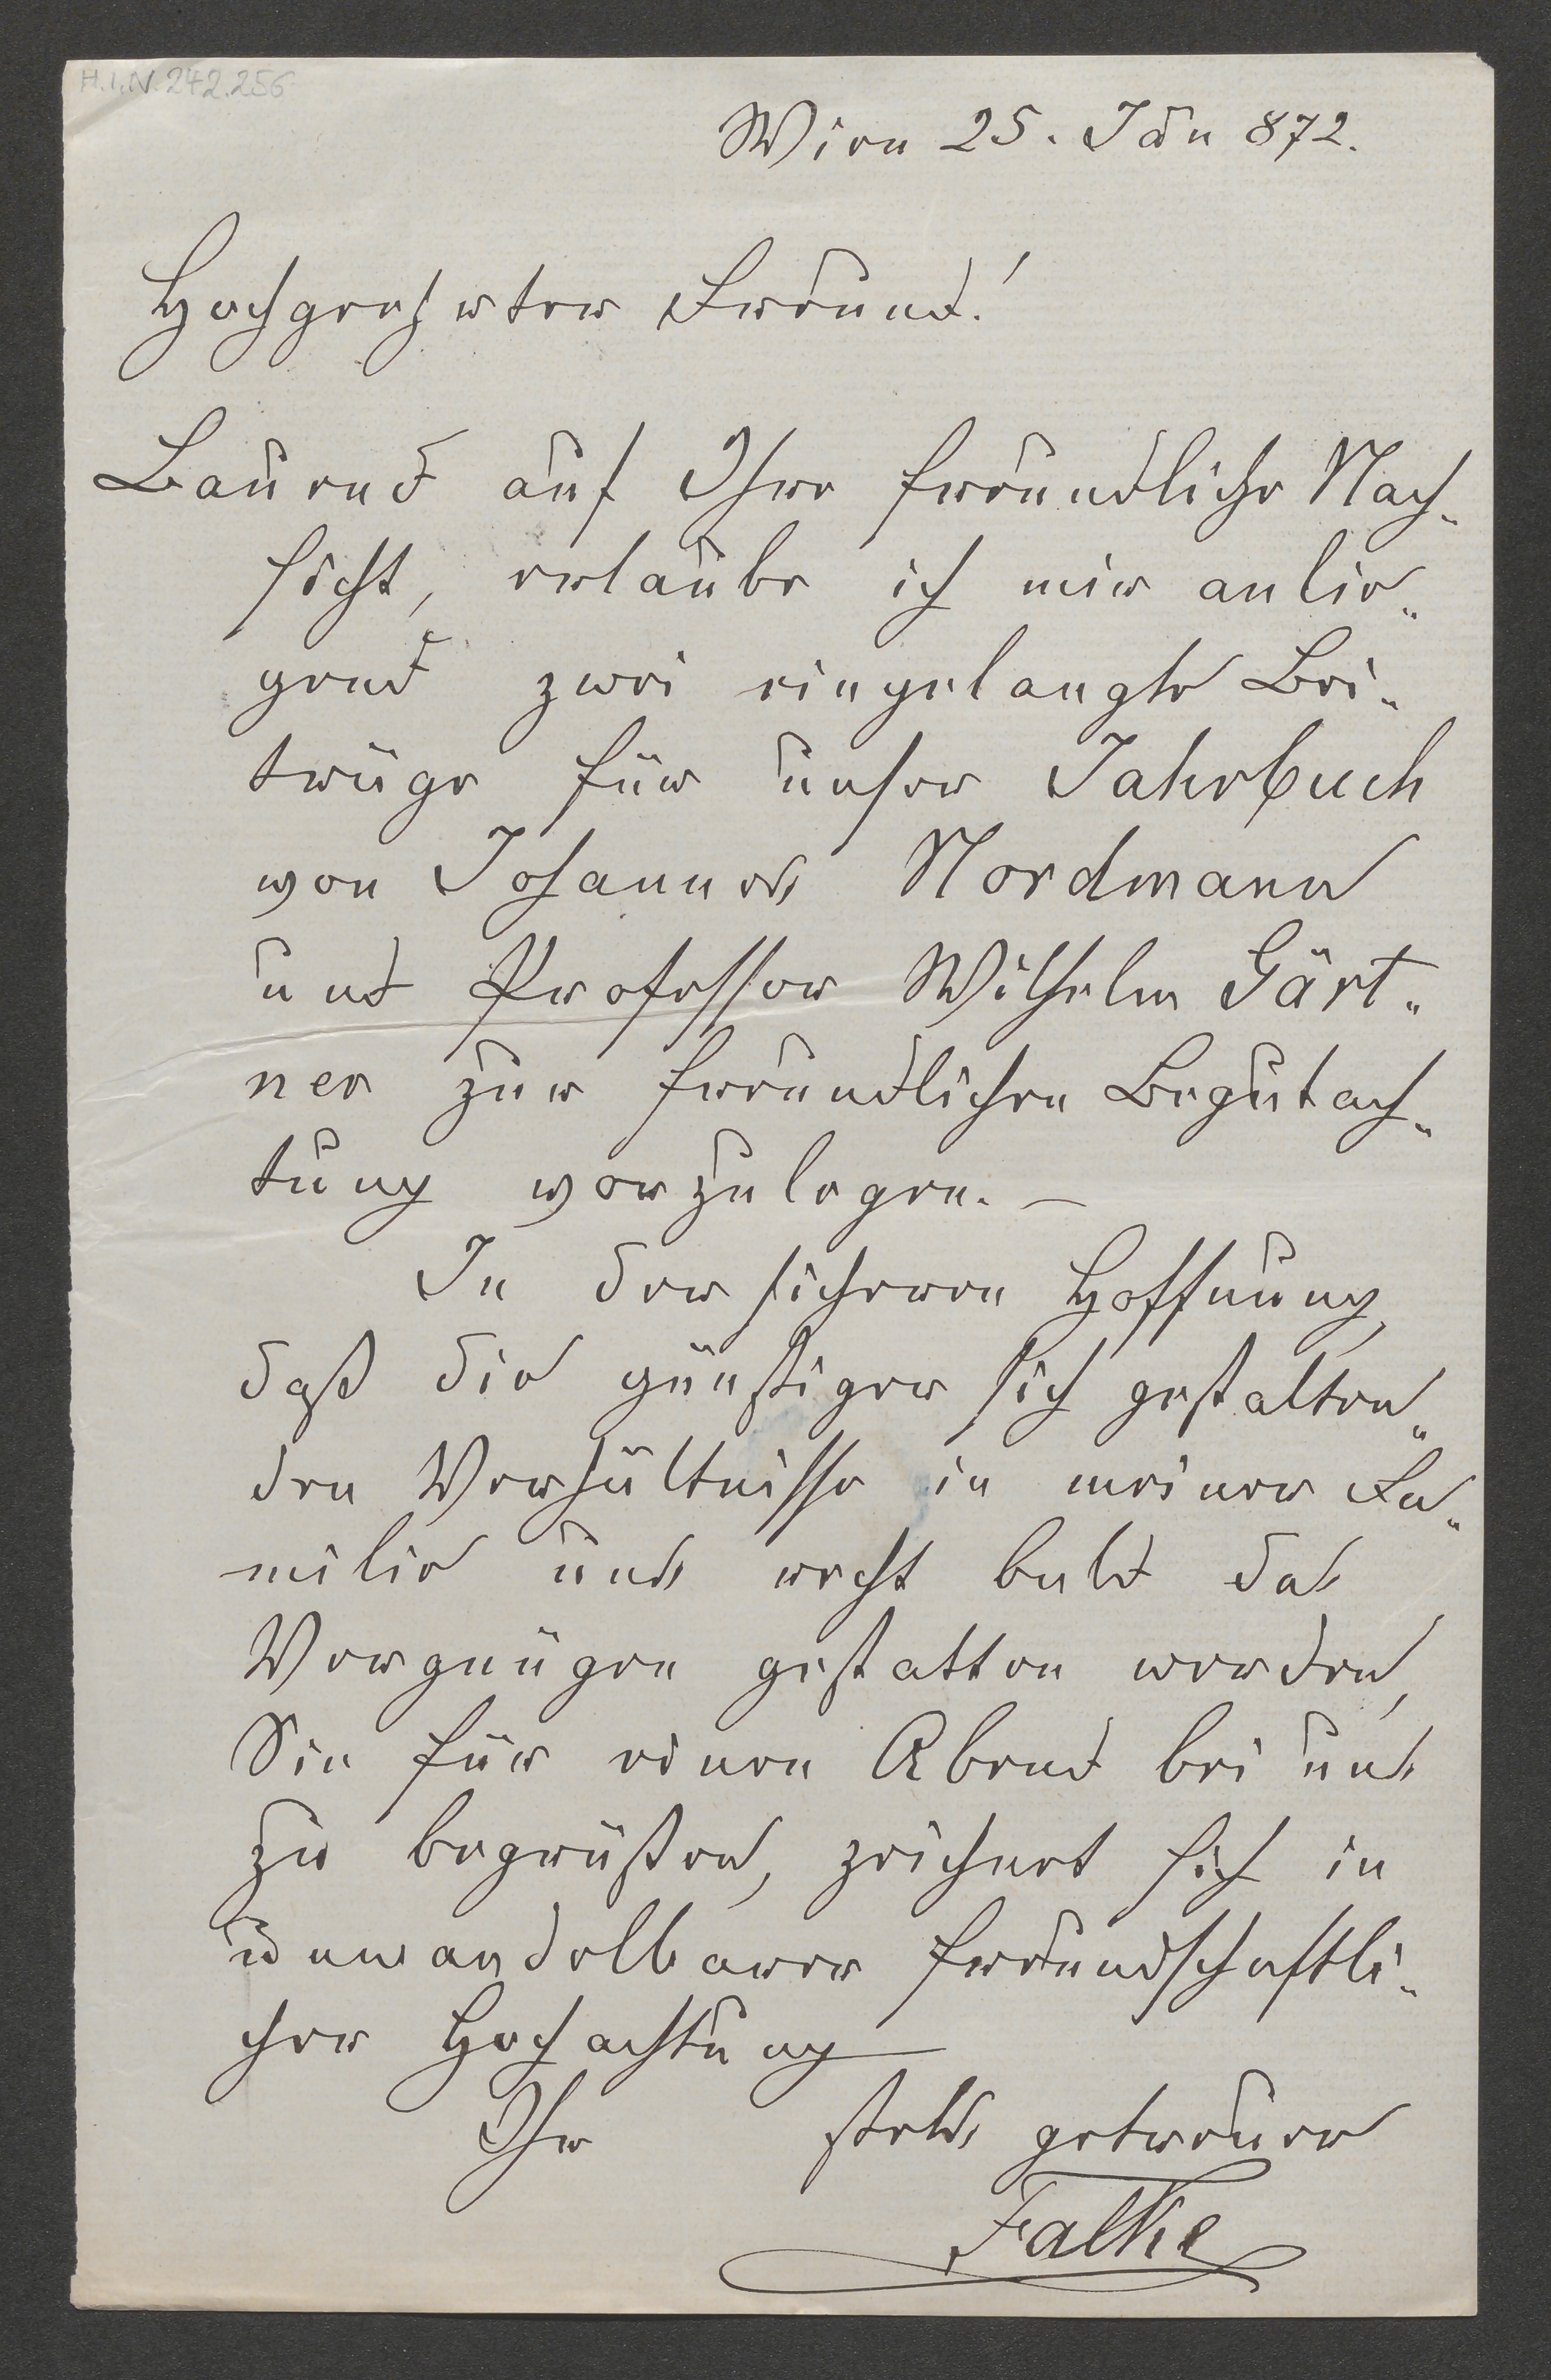 H.I.N. 242.256
Wien 25. Jän 872.
Hochgeehrter Freund!
Bauend auf Ihre freundliche Nach„
sicht, erlaube ich mir anlie„
gend zwei eingelangte Bei„
träge für unser Jahrbuch
von Johannes Nordmann
und Professor Wilhelm Gärt„
ner zur freundlichen Begutach„
tung vorzulegen. –
In der sicheren Hoffnung,
daß die günstiger sich gestalten„
den Verhältnisse in meiner Fa„
milie uns recht bald das
Vergnügen gestatten werden,
Sie für einen Abend bei uns
zu begrüßen, zeichnet sich in
unwandelbarer freundschaftli„
cher Hochachtung
Ihr stets getreuer
Falke